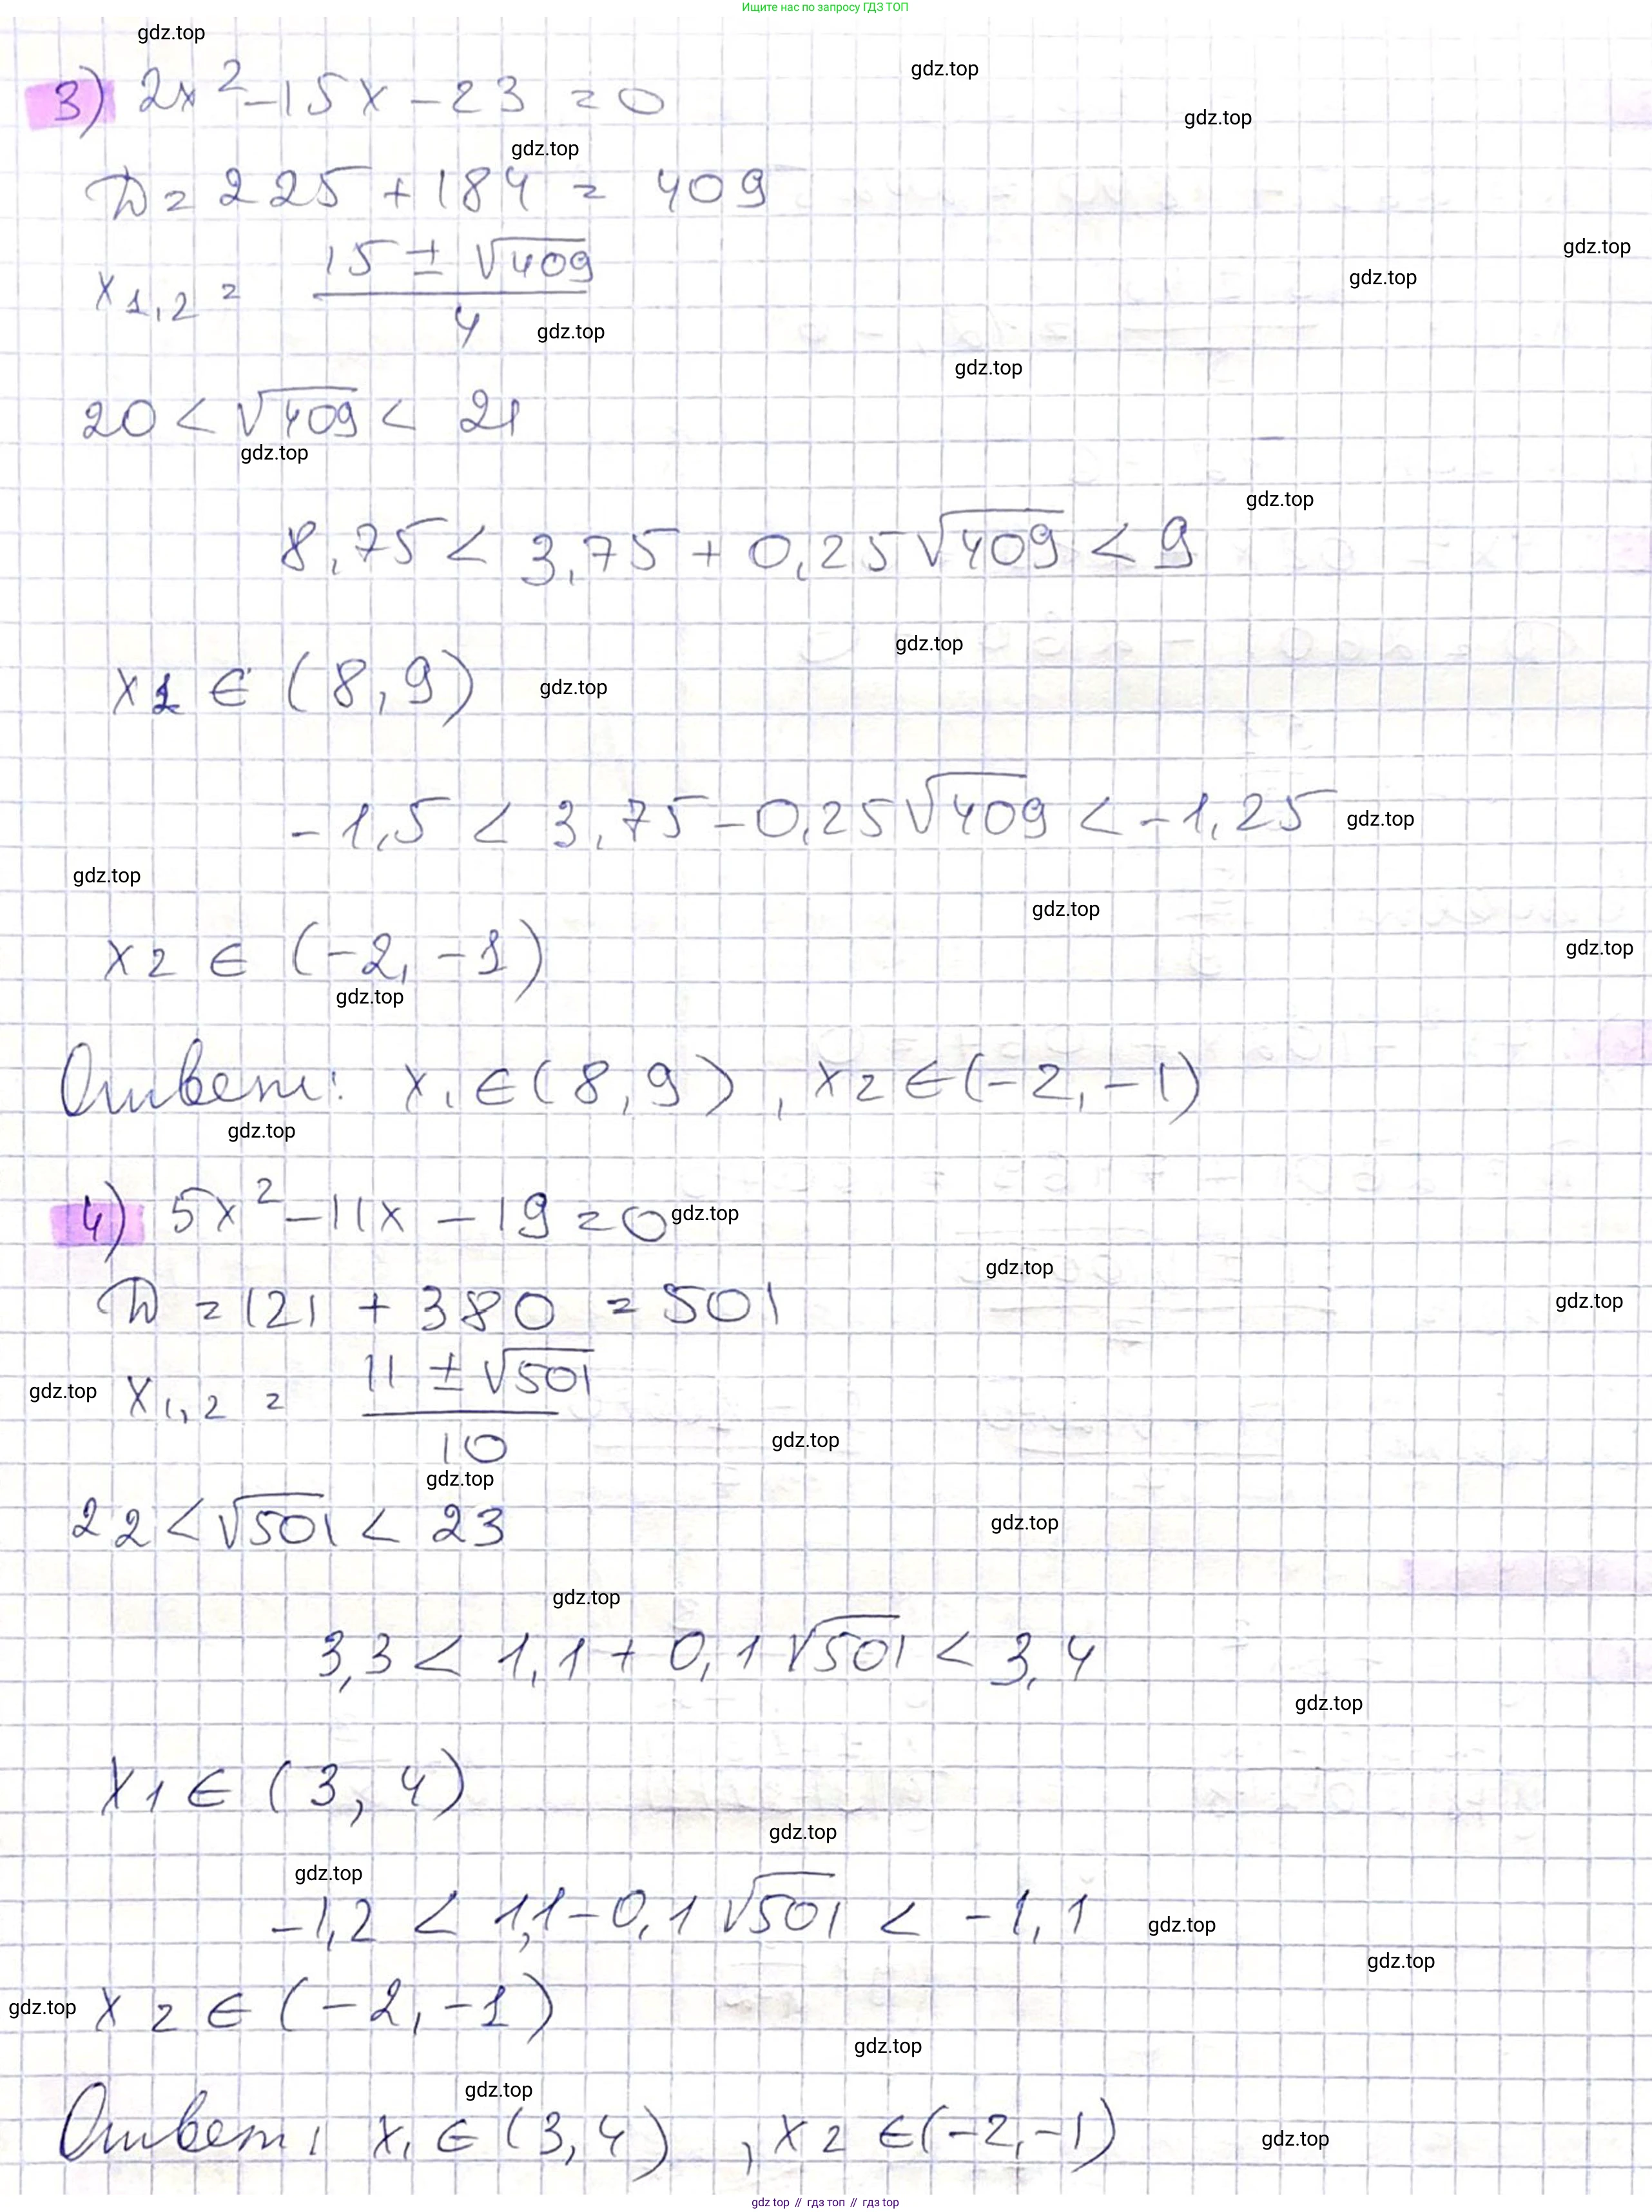 Ищите нас по запросу ГДЗ ТОП
gdz.top
gdz.top
3) 2x² - 15x - 23 = 0
gdz.top
gdz.top
D = 225 + 184 = 409
gdz.top
x1,2 = (15 ± √409) / 4
gdz.top
gdz.top
gdz.top
20 < √409 < 21
gdz.top
gdz.top
8,75 < 3,75 + 0,25√409 < 9
gdz.top
x1 ∈ (8, 9)
gdz.top
-1,5 < 3,75 - 0,25√409 < -1,25
gdz.top
gdz.top
gdz.top
gdz.top
x2 ∈ (-2, -1)
gdz.top
Ответ: x1 ∈ (8, 9), x2 ∈ (-2, -1)
gdz.top
4) 5x² - 11x - 19 = 0
gdz.top
gdz.top
D = 121 + 380 = 501
gdz.top
gdz.top
x1,2 = (11 ± √501) / 10
gdz.top
gdz.top
22 < √501 < 23
gdz.top
gdz.top
3,3 < 1,1 + 0,1√501 < 3,4
gdz.top
x1 ∈ (3, 4)
gdz.top
gdz.top
-1,2 < 1,1 - 0,1√501 < -1,1
gdz.top
gdz.top
gdz.top
x2 ∈ (-2, -1)
gdz.top
gdz.top
Ответ: x1 ∈ (3, 4), x2 ∈ (-2, -1)
gdz.top
gdz top // гдз топ // гдз top